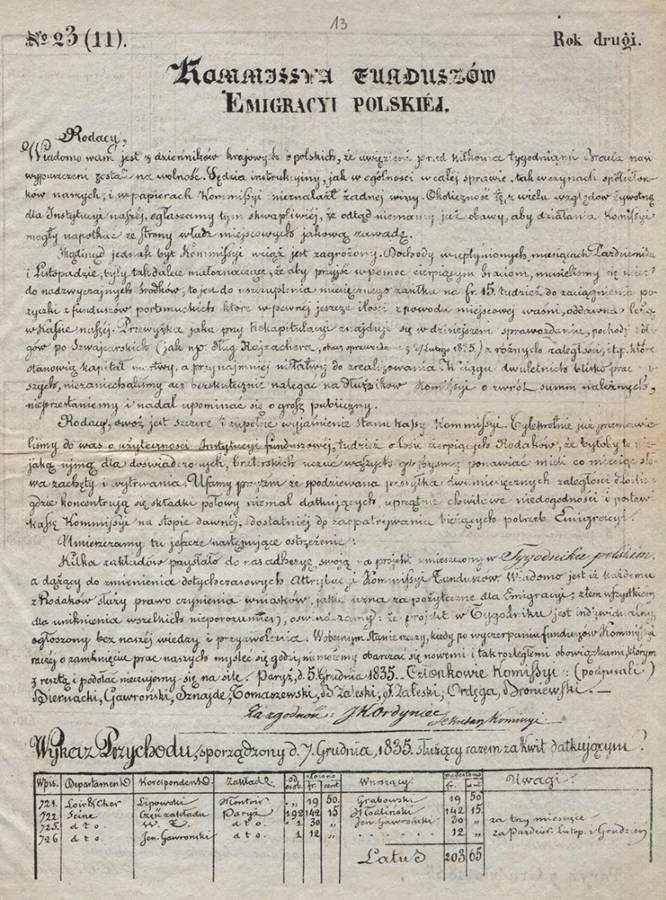 13
№ 23 (11). Rok drugi.
KOMMISSYA FUNDUSZÓW
EMIGRACYI POLSKIÉJ.
Rodacy,
Wiadomo wam jest z dzienników krajowych i polskich, że uwięzieni przed kilkoma tygodniami Bracia nasi
wypuszczeni zostali na wolność. Sędzia instrukcyjny, jak w ogólności w całej sprawie, tak w czynach
naszych, i w papierach Kommissyi nieznalazł żadnej winy. Okoliczność tę, z wielu względów żywotną
dla Instytucyi naszéj, ogłaszamy tym skwapliwiéj, że odtąd niemamy już obawy, aby działania Komissyi
mogły napotkać ze strony władz miejscowych jakową zawadę.
jednak byt Kommissyi wciąż jest zagrożony. Dochody w upłynionych miesiącach Październiku
i Listopadzie, były tak dalece małoznaczące, że aby przyjść w pomoc cierpiącym braciom, musieliśmy się
do nadzwyczajnych środków, to jest do uszczuplenia miesięcznego zasiłku na fr. 15, tudzież do zaciągnienia
z funduszów portsmuckich które w pewnéj jeszcze ilości z powodu miejscowéj waśni, oddawna leżą
w kasie naszéj. Przewyżka jaka przy Rekapitulacyi znajduje się w dzisiejszem sprawozdaniu, pochodzi z
po Szwajcarskich (jak np. dług Rajzachera, 1835.) z różnych zaległości, i t.p. które
stanowią kapitał martwy, a przynajmniej niełatwy do zrealizowania. W ciągu dwuletnich blisko prac
niezaniechaliśmy acz bezskutecznie nalegać na Dłużników Komissyi o zwrót summ należnych,
nieprzestaniemy i nadal upominać się o grosz publiczny.
Rodacy, owóż jest szczere i zupełne wyjaśnienie stanu kassy Kommissyi. Tylekrotnie już przemawialiśmy
do was o użyteczności Instytucyi funduszowéj, tudzież o losie cierpiących Rodaków, że byłoby to
jaką ujmą dla doświadczonych, braterskich uczuć waszych gdybyśmy ponawiać mieli co miesiąc
zachęty i wytrwania. Ufamy przytem że spodziewana przesyłka dwumiesięcznych zaległości z
gdzie koncentrują się składki połowy niemal datkujących, uprzątnie chwilowe niedogodności i postawi
kassę Kommissyi na stopie dawnéj, dostatniéj do zaopatrywania bieżących potrzeb Emigracyi.
Umieszczamy tu jeszcze następujące ostrzeżenie:
Kilka zakładów przysłało do nas adhezye swoją na projekt umieszczony w Tygodniku polskim,
a dążący do zmienienia dotychczasowych Attrybucyi Kommissyi Funduszów. Wiadomo jest iż każdemu
z Rodaków służy prawo czynienia wniosków, jakie uzna za pożyteczne dla Emigracyi; z tem wszystkiem
dla uniknienia wszelkich nieporozumień, oświadczamy: że projekt w Tygodniku jest indywidualny
ogłoszony bez naszéj wiedzy i przyzwolenia. W obecnym stanie rzeczy, kiedy po wyczerpaniu funduszów Kommissyi
raczéj o zamknięciu prac naszych myśleć się godzi, niemożemy obarczać się nowemi i tak rozległemi obowiązkami, którym
z resztą i podołać nieczujemy się na sile. Paryż, d. 5. Grudnia 1835. Członkowie Komissyi: (podpisali)
Biernacki, Gawroński, Oznajde, Tomaszewski, Zaleski, J. Zaleski, Ordęga, Wroniewski.
Za zgodność: J. N. Ordyniec
Sekretarz Komissyi
Wykaz Przychodu, sporządzony d. 7. Grudnia, 1835. służący razem za kwit datkującym.
Wpis. Departament Korespondent Zakład osób złożono fr. cent. Wnoszący nadesłano fr. cent. Uwagi
721. Loir & Cher Lipowski Montoir „ 19 50. Grabowski 19 50
722 Seine Część zakładu Paryż 192 142 15 Hodliński 142 15
725. dto W. Z. dto 1 30 „ Jen. Gawroński 30 „ za trzy miesiące
726 dto Jen. Gawroński dto 1 12 „ 12 „ za Paźdz. Listop. i Grudzień
Latus 203 65